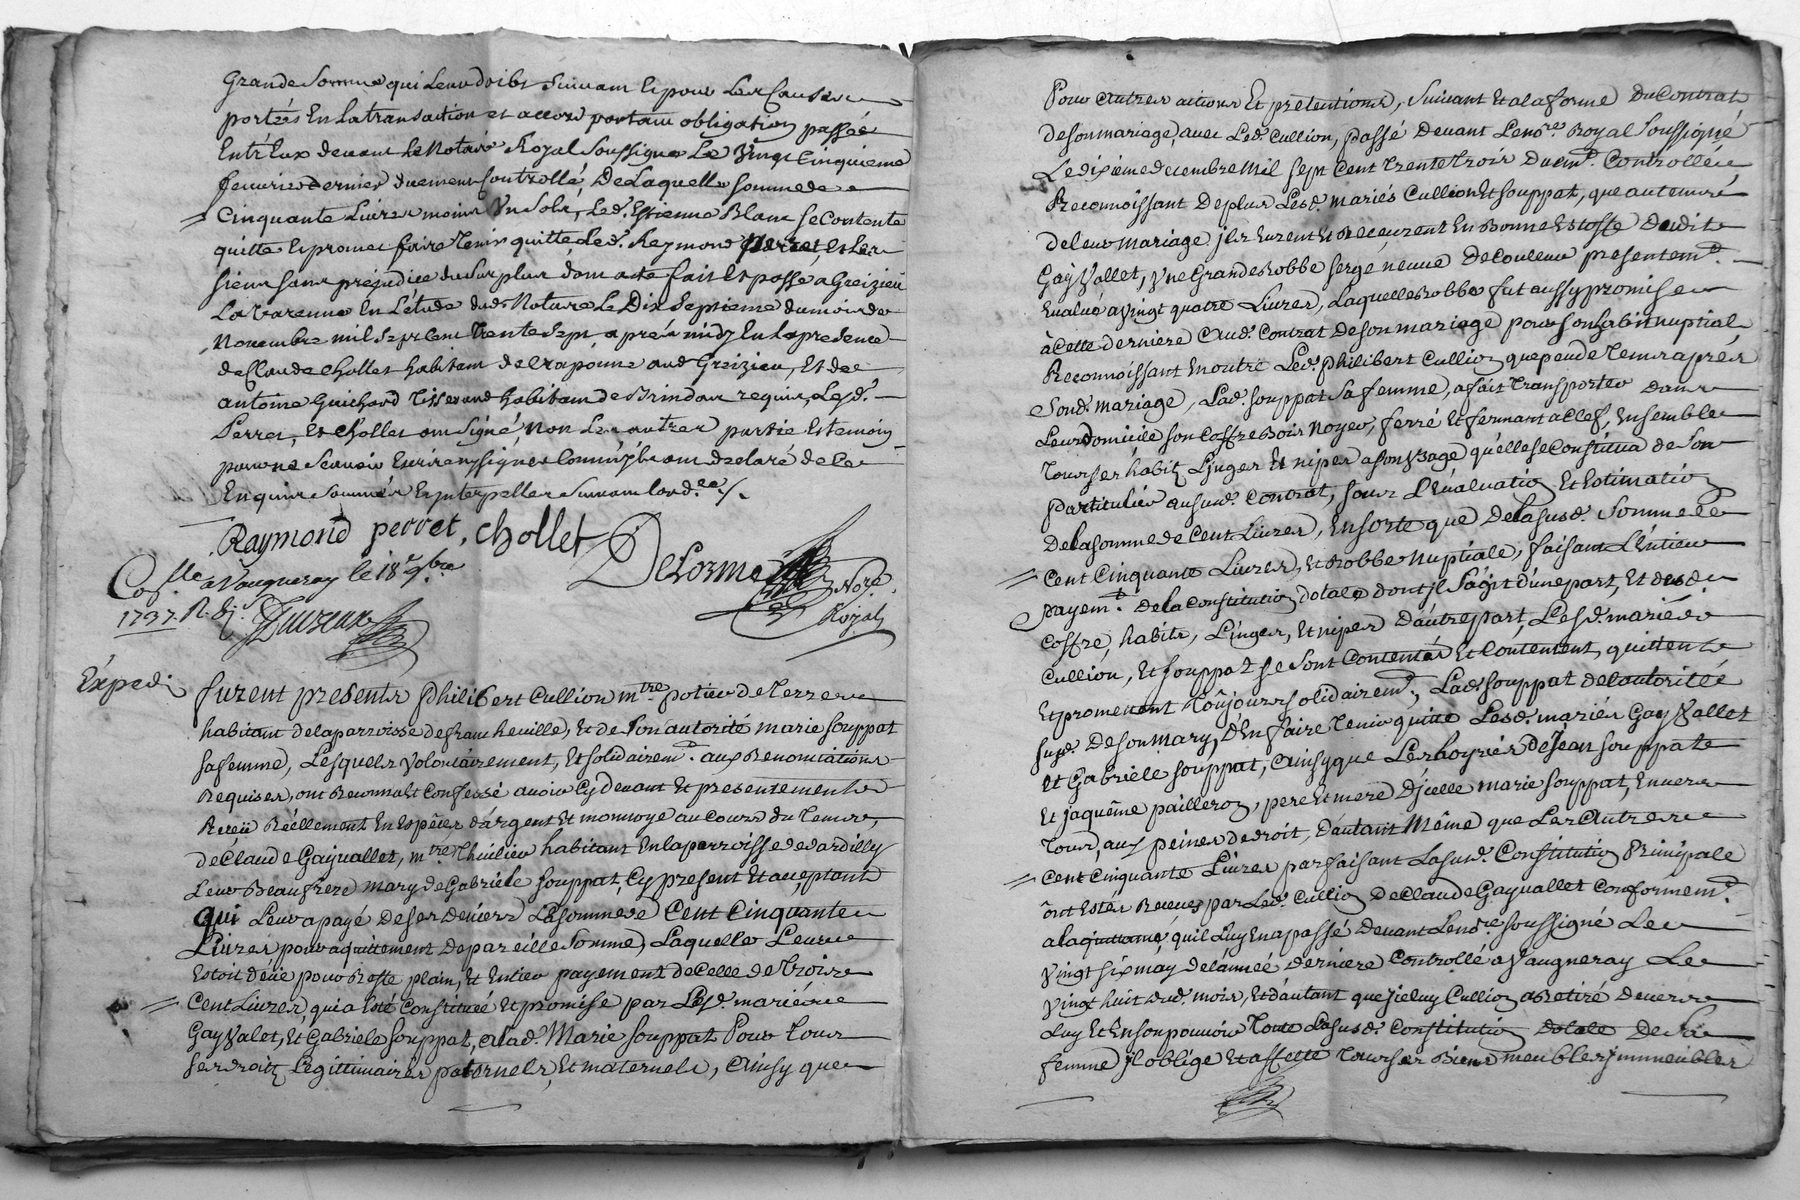 Grande somme qui leur doibt suivant et pour les causes
portées en la transaction et accord portant obligation passée
Entr'Eux devant le Notaire Royal soussigné le vingt cinquieme
fevrier dernier duement controllé, De Laquelle somme de
Cinquante Livres moins un sols, led. Estienne Blanc se Contente
quitte et promet faire tenir quitte led. Reymond perret, et les
siens sans prejudice du surplus dont acte fait et passé a Greizieu
La Varenne en l'étude dud. Notaire le Dix septieme du mois de
Novembre mil sept cent trente sept, apres midy En la presence
de Claude Chollet habitant de Craponne aud Greizieu, Et de
antoine Guichard Tisserand habitant de Brindas requis, Lesd.
Perret, et Chollet ont signé, Non Les autres partie et temoin
pour ne sçavoir Ecrire ny signer comm'ils ont declaré de ce
Enquis sommés et interpellés suivant l'ord.ce /.
Raymond perret, Chollet
DeLorme Nore.
Royal
Con.lle a Vaugneray le 18 9bre
1737. R.
Exped.
furent presents Philibert Cullion mtre potier de Terre
habitant de la parroisse de francheville, et de son autorité marie souppat
sa femme, Lesquels volontairement, Et solidairemt. aux Renonciations
Requises, ont Reconnu et Confessé avoir Cy devant Et presentement
Receü Réellement En Espèces d'argent Et monnoye au cours du Temps,
de Claude Gayvallet, mtre Thuilier habitant En la parroisse de dardilly
Leur Beaufrere mary de Gabriele souppat, Cy present Et acceptant
qui Leur a payé de ses Deniers La somme de Cent Cinquante
Livres pour aquittement de pareille somme, Laquelle Leur
Estoit deüe pour Reste plain, Et Entier payement de Celle de Trois
Cent Livres, qui a Eté Constituée Et promise par Lesd. mariés
Gay Valet, Et Gabriele souppat, a lad. Marie souppat Pour tous
ses droits Legittimaires paternels, Et maternels, Ainsy que
Pour autres actions Et prétentions, suivant Et a la forme Du Contrat
de son mariage, avec Led. Cullion, passé Devant Le nore. Royal soussigné
Le dixieme decembre Mil sept Cent Trente Trois Duemt. Controllée,
Reconnoissant De plus Lesd. mariés Cullion Et souppat, que au temps
de leur mariage ils Eurent Et Receurent En Bonne Estoffe Dudit
Gay Vallet, Vne Grande Robbe serge neuve De Couleur presentemt.
Evalué a vingt quatre Livres, Laquelle Robbe fut aussy promise
à Cette derniere Aud. Contrat De son mariage pour son habit nuptial,
Reconnoissant En outre Led. philibert Cullion que peu de Tems après
Sond. mariage, Lad. souppat sa femme, a fait Transporter dans
Leur domicile son Coffre Bois Noyer, ferré Et fermant a Clef, Ensemble
Tous ses habits Linges Et nipes a son Vsage qu'elle se Constitua de son
particulier aususd. Contrat, sous L'Evaluation Et Estimation
De la somme de Cent Livres, En sorte que De la susd. somme de
Cent Cinquante Livres, Et Robbe Nuptiale, faisant L'Entier
payemt. De la Constitution dotale dont il s'agit d'une part, Et desd.
Coffre, habits, Linges, Et nipes D'autre part, Lesd. mariés
Cullion, Et souppat se sont Contentés Et Contentent, quittent
Et promettent Toûjours solidairemt., Lad. souppat de l'autorité
susd. De son mary, d'En faire Tenir quitte Lesd. mariés Gay Vallet
Et Gabriele souppat, Ainsy que Les hoyries de Jean souppat
Et jaquême pailleron, pere Et mere D'icelle marie souppat, Envers
Tous, aux peines de droit, D'autant Même que Les Autres
Cent Cinquante Livres parfaisant La susd. Constitution Principale
ônt Estés Receues par Led. Cullion De Claude Gayvallet Conformemt.
a la quittance qu'il Luy En a passé Devant Le nore. soussigné Le
Vingt six may de l'année derniere Controllé a Vaugneray Le
Vingt huit dud. mois, Et d'autant que iceluy Cullion a Retiré Devers
Luy Et En son pouvoir Toute La susd. Constitution dotale De sa
femme il oblige Et affecte Tous ses Biens meubles immeubles